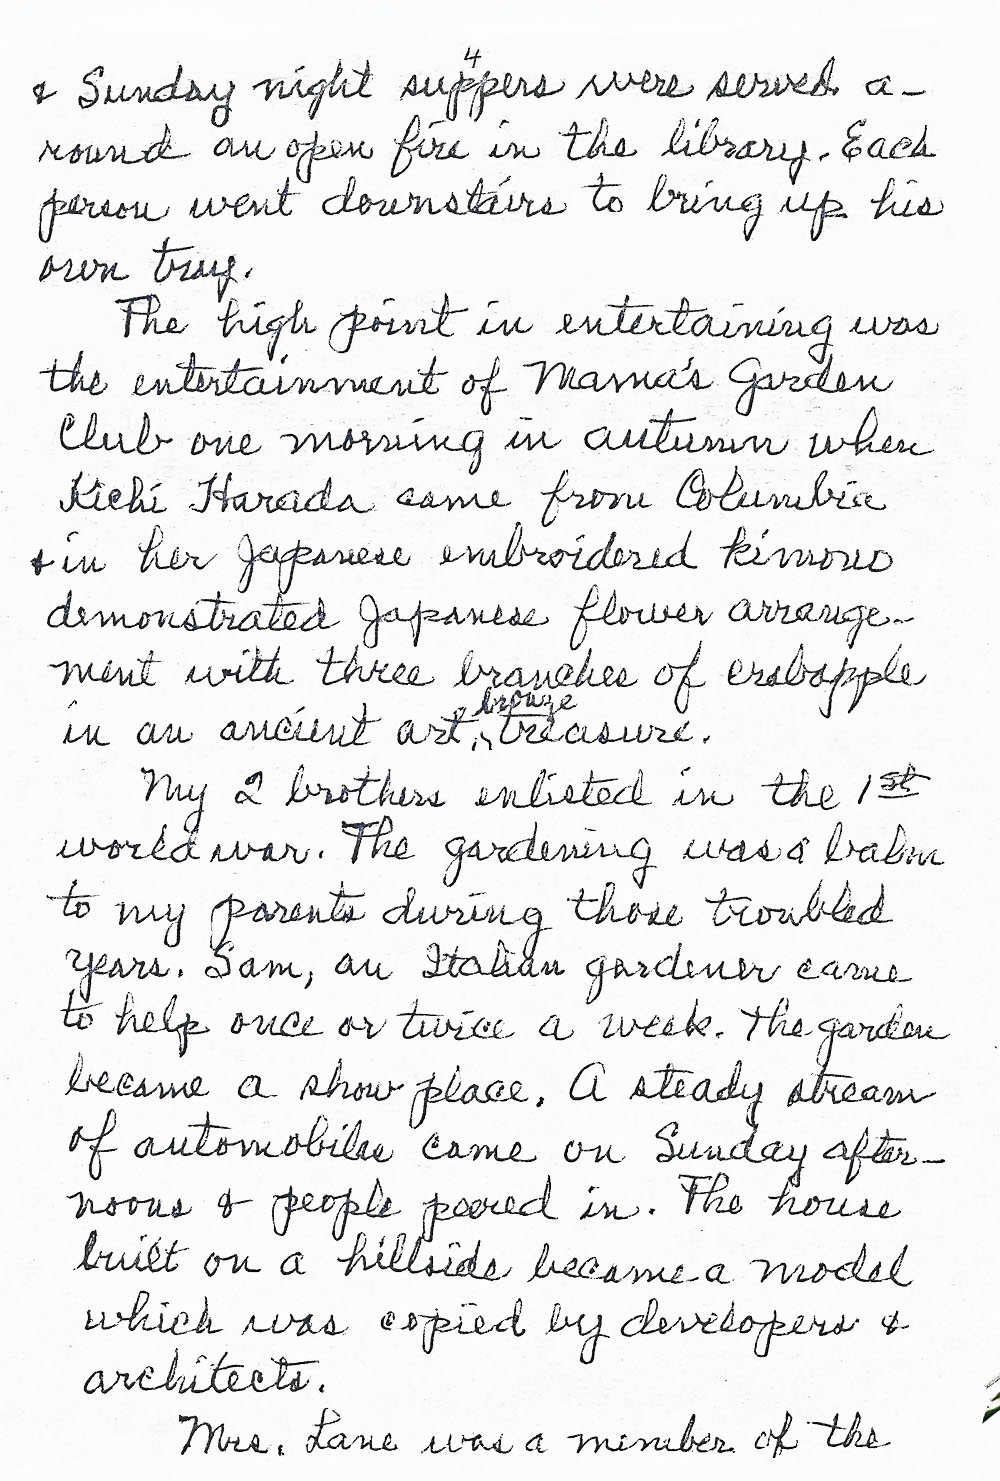 4
& Sunday night suppers were served a-
round an open fire in the library. Each
person went downstairs to bring up his
own tray.
The high point in entertaining was
the entertainment of Mama's Garden
Club one morning in autumn when
Kichi Harada came from Columbia
& in her Japanese embroidered kimono
demonstrated Japanese flower arrange-
ment with three branches of crabapple
bronze
in an ancient art, treasure.
My 2 brothers enlisted in the 1st
world war. The gardening was a balm
to my parents during those troubled
years. Sam, an Italian gardener came
to help once or twice a week. The garden
became a show place. A steady stream
of automobiles came on Sunday after-
noons & people peered in. The house
built on a hillside became a model
which was copied by developers &
architects.
Mrs. Lane was a member of the